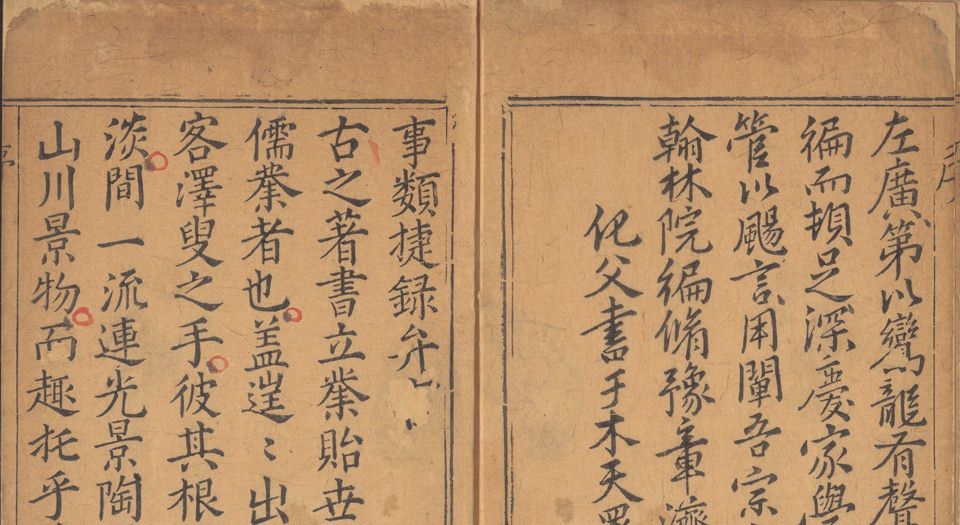 左廣第以鸞龍有聲
徧而頓足深慶家學
管以颺言用闡吾宗
翰林院編脩豫章濟
化父書于木天署
事類捷録弁
古之著書立業貽世
儒業者也盖遑〻出
客澤叟之手彼其根
淡間一流連光景陶
山川景物而趣托乎